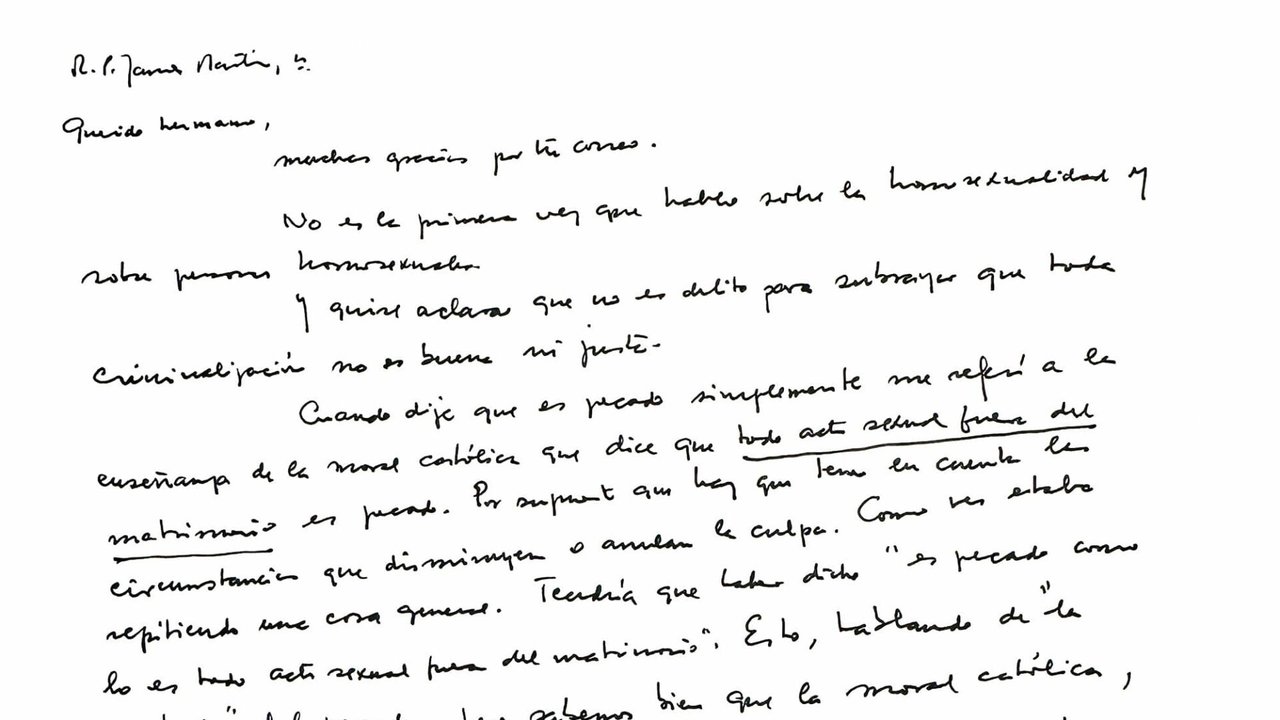 R. P. James Martin, sj.
Querido hermano,
muchas gracias por tu correo.
No es la primera vez que hablo sobre la homosexualidad y
sobre personas homosexuales
Y quise aclarar que no es delito para subrayar que toda
criminalización no es buena ni justa.
Cuando dije que es pecado simplemente me referí a la
enseñanza de la moral católica que dice que todo acto sexual fuera del
matrimonio es pecado. Por supuesto que hay que tener en cuenta las
circunstancias que disminuyen o anulan la culpa. Como ves estaba
repitiendo una cosa general. Tendría que haber dicho "es pecado como
lo es todo acto sexual fuera del matrimonio". Esto, hablando de "la
sabemos bien que la moral católica,